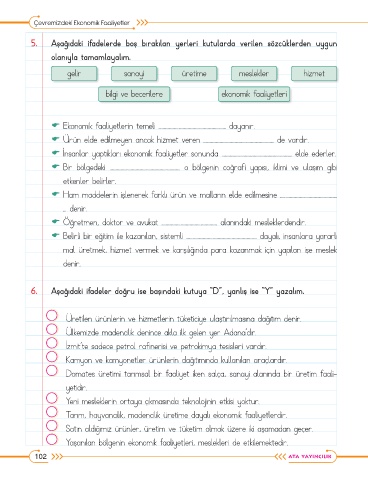 Çevremizdeki Ekonomik Faaliyetler
5. Aşağıdaki ifadelerde boş bırakılan yerleri kutularda verilen sözcüklerden uygun
olanıyla tamamlayalım.
gelir sanayi üretime meslekler hizmet
bilgi ve becerilere ekonomik faaliyetleri
Ekonomik faaliyetlerin temeli ............ dayanır.
Ürün elde edilmeyen ancak hizmet veren ............ de vardır.
İnsanlar yaptıkları ekonomik faaliyetler sonunda ............ elde ederler.
Bir bölgedeki ............ o bölgenin coğrafi yapısı, iklimi ve ulaşım gibi
etkenler belirler.
Ham maddelerin işlenerek farklı ürün ve malların elde edilmesine ............
.. denir.
Öğretmen, doktor ve avukat ............ alanındaki mesleklerdendir.
Belirli bir eğitim ile kazanılan, sistemli ............ dayalı, insanlara yararlı
mal üretmek, hizmet vermek ve karşılığında para kazanmak için yapılan işe meslek
denir.
6. Aşağıdaki ifadeler doğru ise başındaki kutuya "D", yanlış ise "Y" yazalım.
Üretilen ürünlerin ve hizmetlerin tüketiciye ulaştırılmasına dağıtım denir.
Ülkemizde madencilik denince akla ilk gelen yer Adana'dır.
İzmit'te sadece petrol rafinerisi ve petrokimya tesisleri vardır.
Kamyon ve kamyonetler ürünlerin dağıtımında kullanılan araçlardır.
Domates üretimi tarımsal bir faaliyet iken salça, sanayi alanında bir üretim faali-
yetidir.
Yeni mesleklerin ortaya çıkmasında teknolojinin etkisi yoktur.
Tarım, hayvancılık, madencilik üretime dayalı ekonomik faaliyetlerdir.
Satın aldığımız ürünler, üretim ve tüketim olmak üzere iki aşamadan geçer.
Yaşanılan bölgenin ekonomik faaliyetleri, meslekleri de etkilemektedir.
102
ATA YAYINCILIK